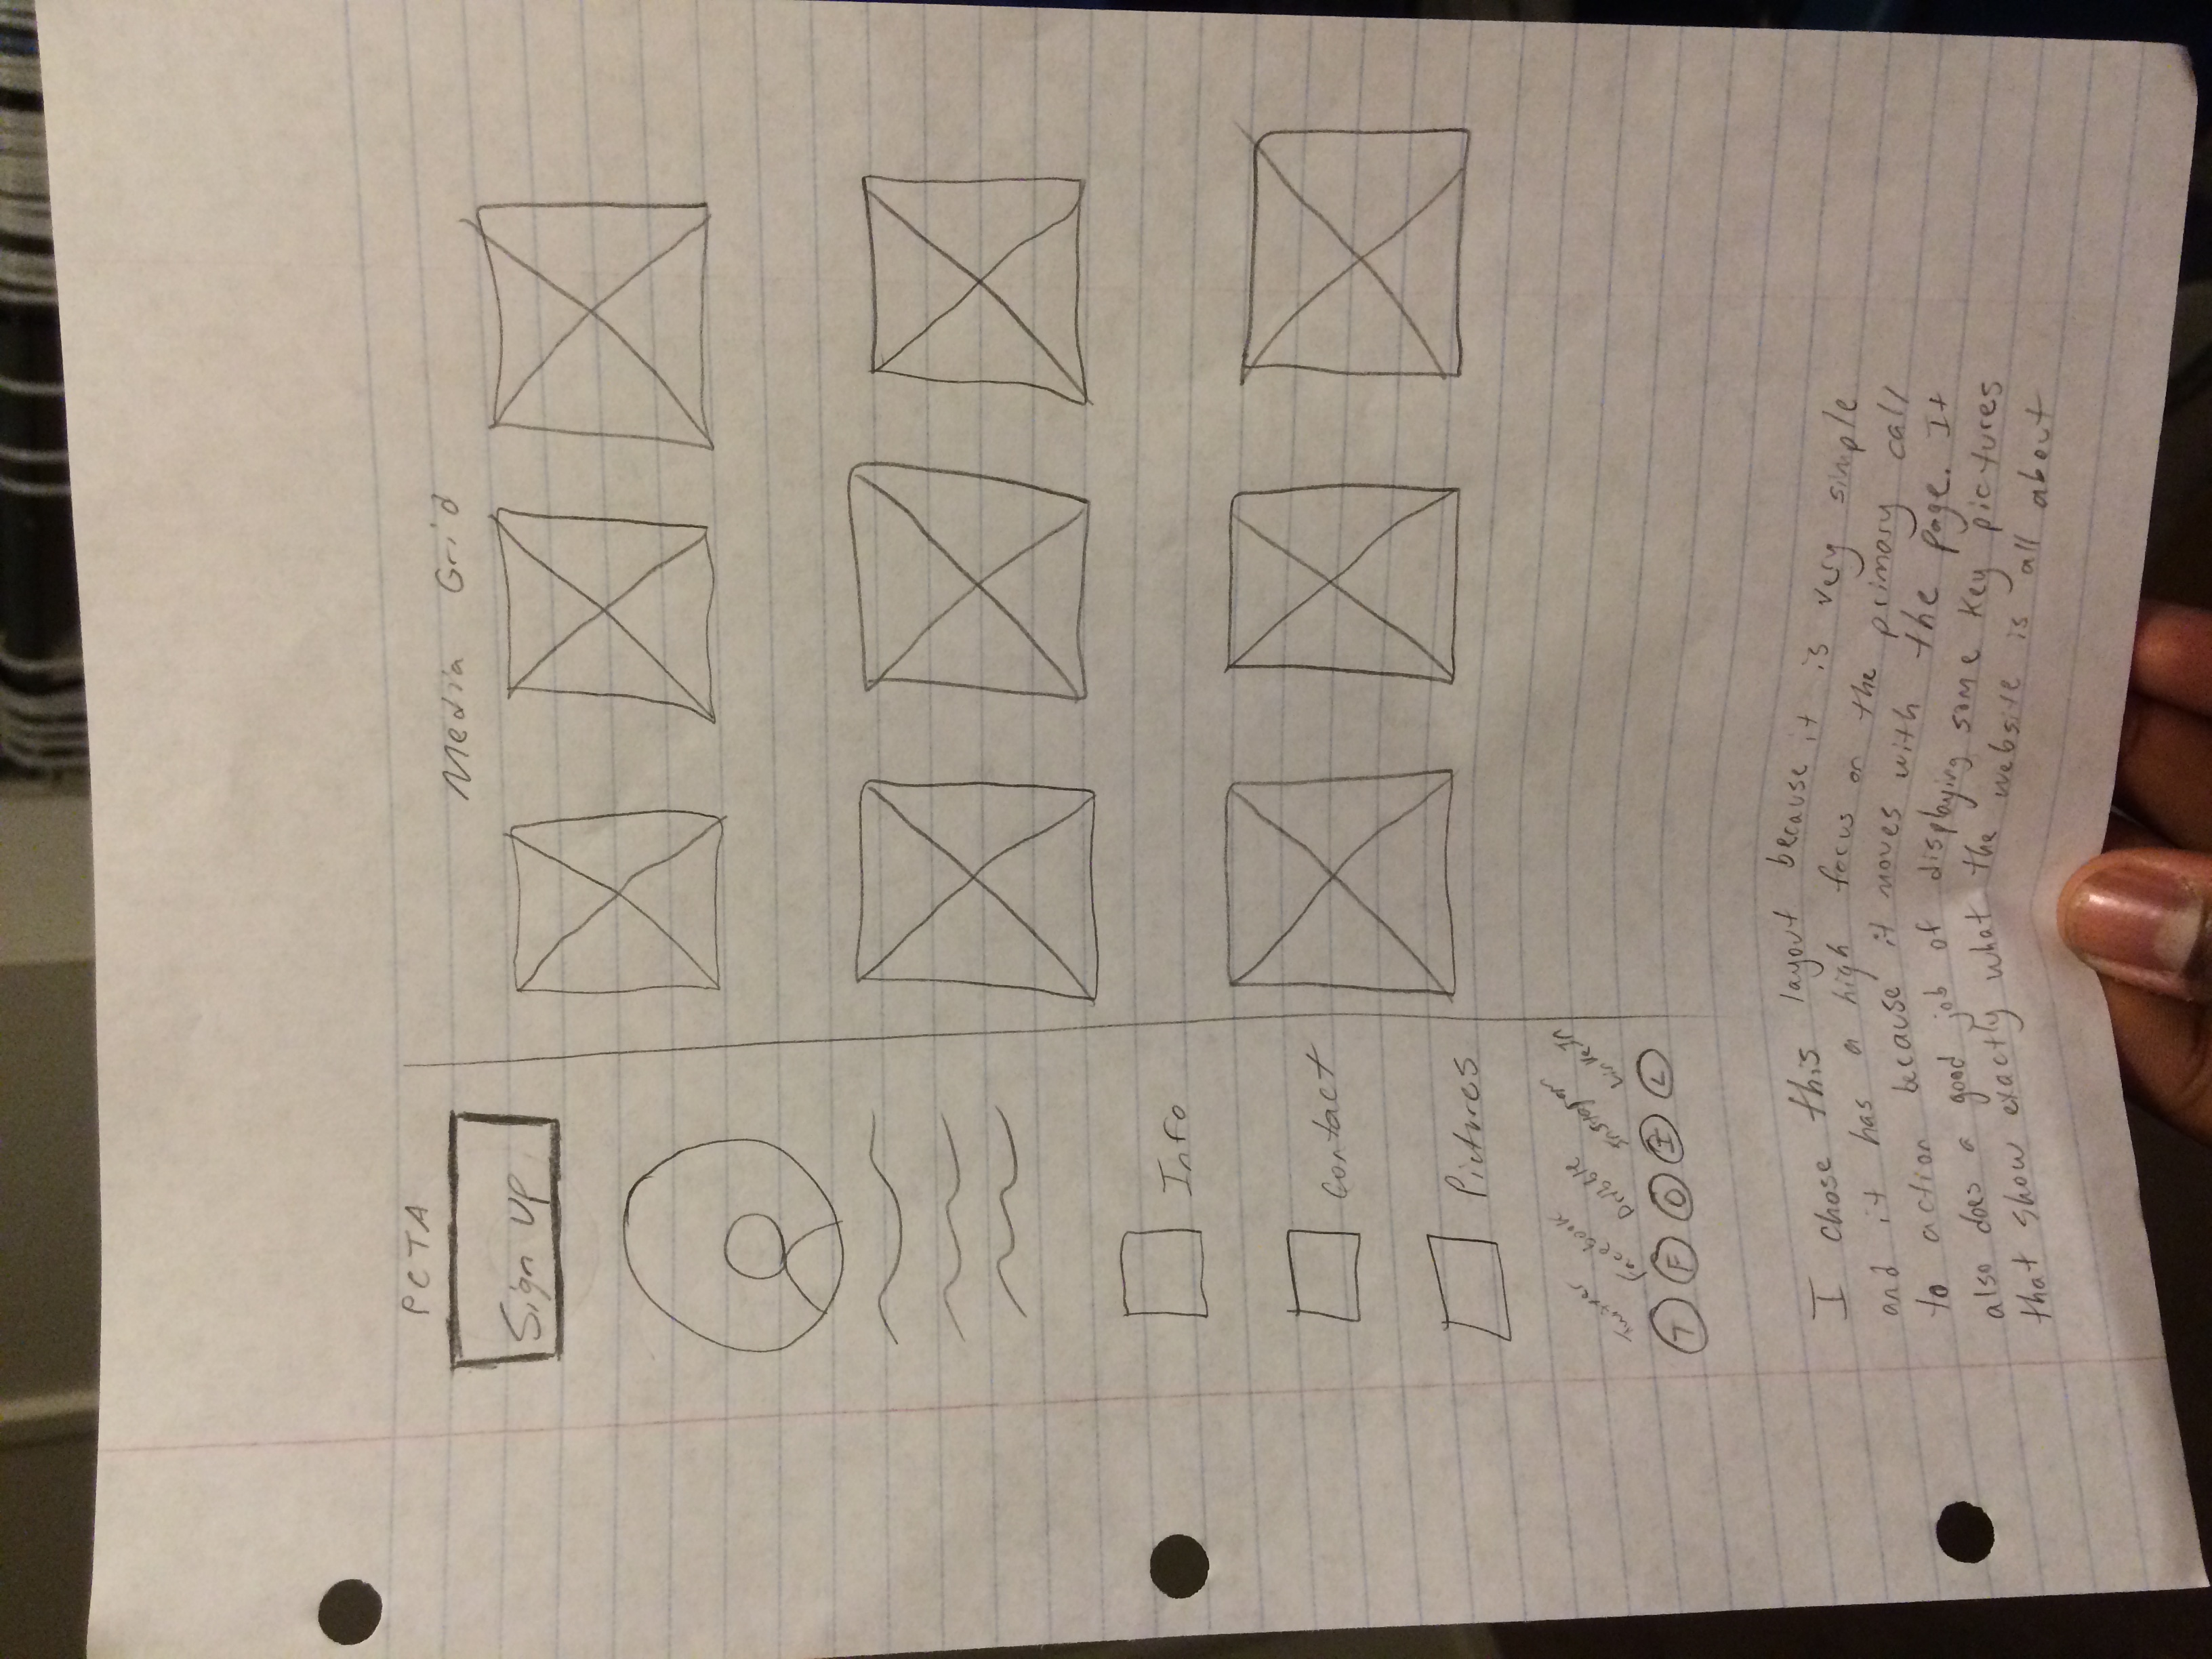 PCTA
Sign up
Media Grid
Info
Contact
Pictures
Twitter Facebook Dribble Instagram LinkeIn
T F D I L
I chose this layout because it is very simple
and it has a high focus on the primary call
to action because it moves with the page. It
also does a good job of displaying some key pictures
that show exactly what the website is all about